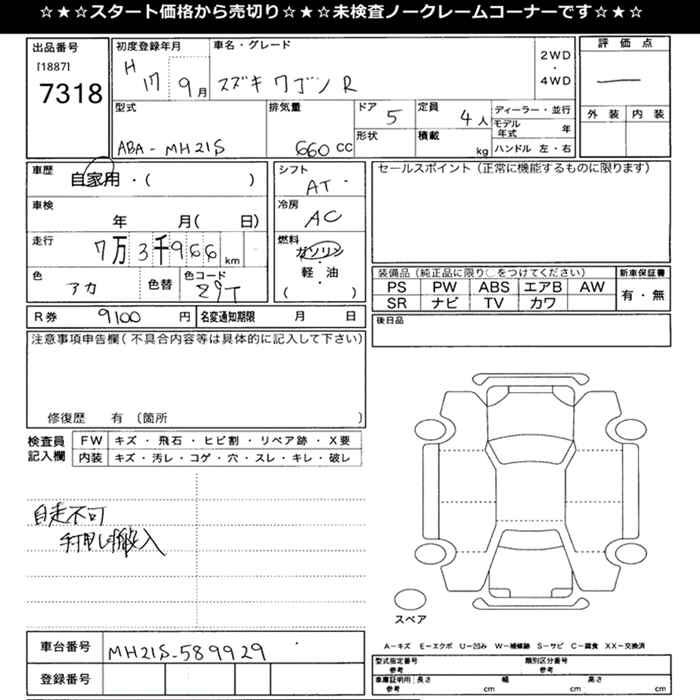 ☆★☆スタート価格から売切り☆★☆未検査ノークレームコーナーです☆★☆
出品番号
[1887]
7318
初度登録年月
H 17 9月
車名・グレード
スズキ ワゴンR
2WD
・
4WD
評価点
外装 内装
型式
ABA-MH21S
排気量
660CC
ドア 5
形状
定員 4人
積載 kg
ディーラー・並行
モデル年式 年
ハンドル 左・右
車歴
自家用・( )
車検
年 月( 日)
走行
7万3千966km
色
アカ
色替
色コード
シフト
AT
冷房
AC
燃料
ガソリン
・
軽油
( )
セールスポイント(正常に機能するものに限ります)
装備品(純正品に限り○をつけてください)
PS PW ABS エアB AW
SR ナビ TV カワ
新車保証書
有・無
後日品
R券 9100円
名変通知期限 月 日
注意事項申告欄(不具合内容等は具体的に記入して下さい)
修復歴 有 (箇所 )
検査員記入欄
FW キズ・飛石・ヒビ割・リペア跡・X要
内装 キズ・汚レ・コゲ・穴・スレ・キレ・破レ
自走不可
搬入
スペア
A-キズ E-エクボ U-凹み W-補修跡 S-サビ C-腐食 XX-交換済
車台番号
MH21S-589929
登録番号
型式指定番号
参考
類別区分番号
参考
車庫証明用
参考
長さ cm
幅 cm
高さ cm